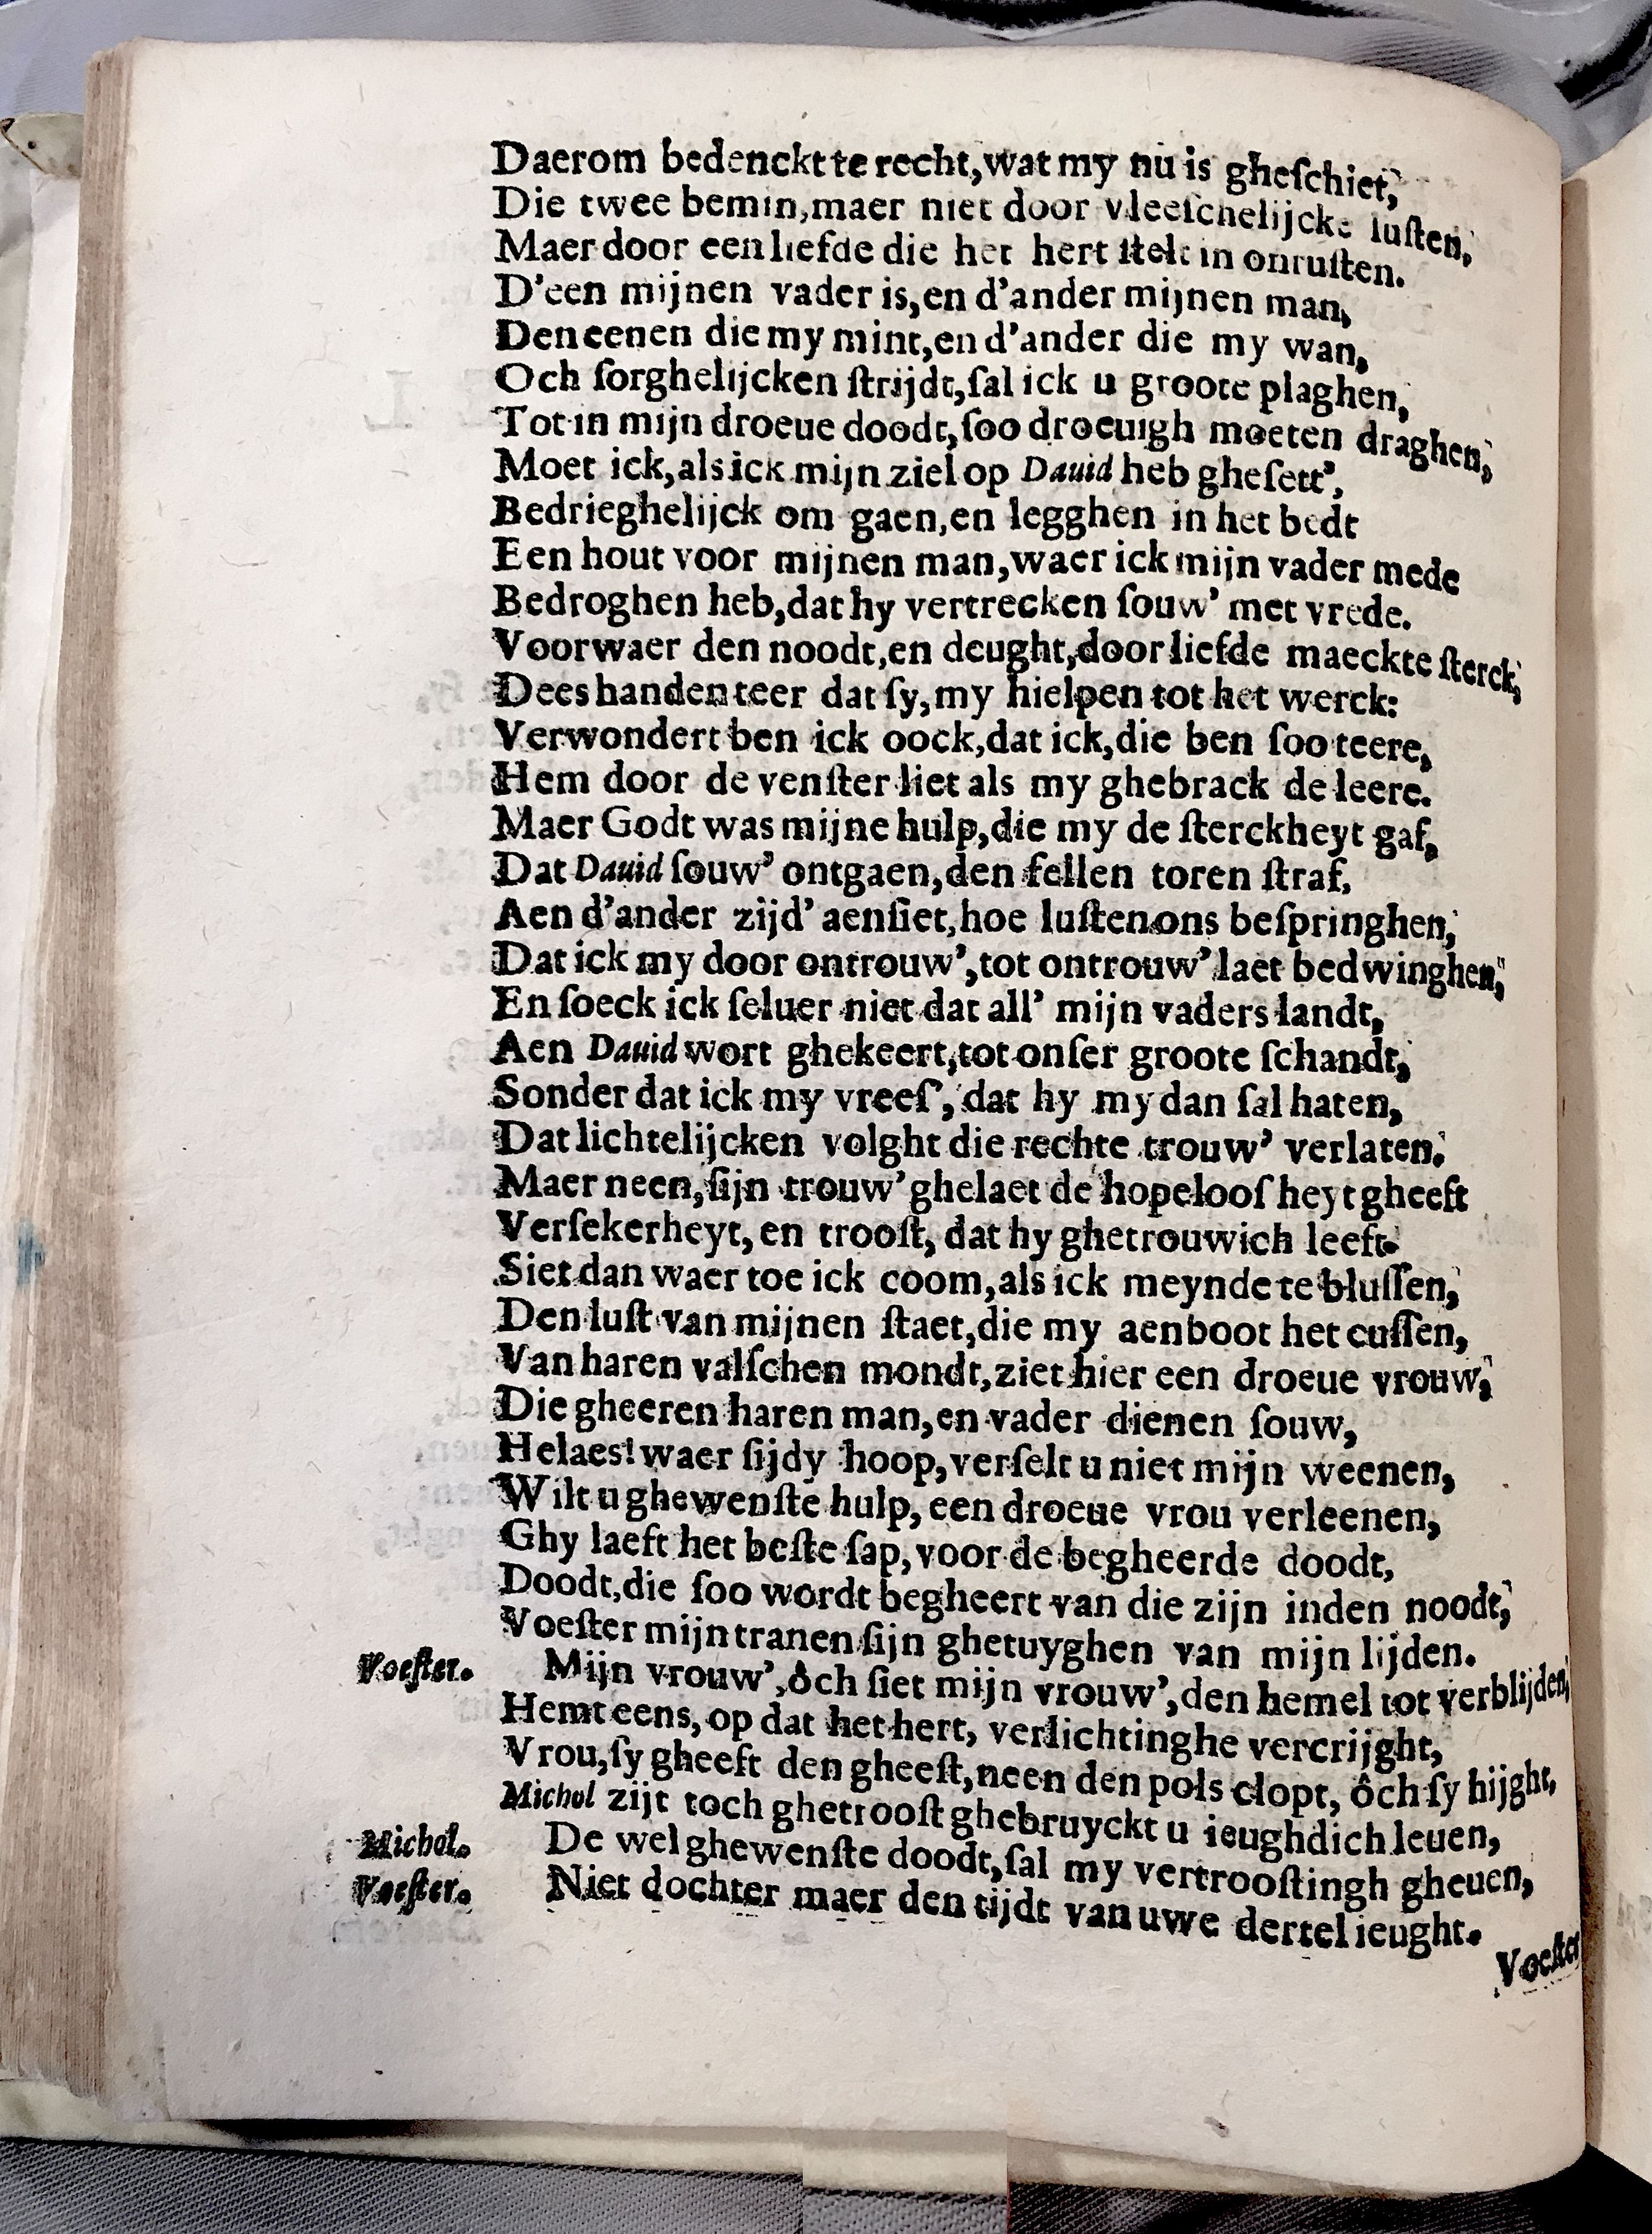 Daerom bedenckt te recht, wat my nu is gheſchiet,
Die twee bemin, maer niet door vleeſchelijcke luſten,
Maer door een liefde die het hert ſtelt in onruſten.
D'een mijnen vader is, en d'ander mijnen man,
Den eenen die my mint, en d'ander die my wan,
Och ſorghelijcken ſtrijdt, ſal ick u groote plaghen,
Tot in mijn droeue doodt, ſoo droeuigh moeten draghen,
Moet ick, als ick mijn ziel op Dauid heb gheſett',
Bedrieghelijck om gaen, en legghen in het bedt
Een hout voor mijnen man, waer ick mijn vader mede
Bedroghen heb, dat hy vertrecken ſouw' met vrede.
Voorwaer den noodt, en deught, door liefde maeckte ſterck,
Dees handen teer dat ſy, my hielpen tot het werck:
Verwondert ben ick oock, dat ick, die ben ſoo teere,
Hem door de venſter liet als my ghebrack de leere.
Maer Godt was mijne hulp, die my de ſterckheyt gaf,
Dat Dauid ſouw' ontgaen, den fellen toren ſtraf.
Aen d'ander zijd' aenſiet, hoe luſten ons beſpringhen,
Dat ick my door ontrouw', tot ontrouw' laet bedwinghen,
En ſoeck ick ſeluer niet dat all' mijn vaders landt,
Aen Dauid wort ghekeert, tot onſer groote ſchandt,
Sonder dat ick my vreeſ', dat hy my dan ſal haten,
Dat lichtelijcken volght die rechte trouw' verlaten.
Maer neen, ſijn trouw' ghelaet de hopelooſheyt gheeft
Verſekerheyt, en trooſt, dat hy ghetrouwich leeft.
Siet dan waer toe ick coom, als ick meynde te bluſſen,
Den luſt van mijnen ſtaet, die my aenboot het cuſſen,
Van haren valſchen mondt, ziet hier een droeue vrouw,
Die gheeren haren man, en vader dienen ſouw,
Helaes! waer ſijdy hoop, verſelt u niet mijn weenen,
Wilt u ghewenſte hulp, een droeue vrou verleenen,
Ghy laeft het beſte ſap, voor de begheerde doodt,
Doodt, die ſoo wordt begheert van die zijn inden noodt,
Voeſter mijn tranen ſijn ghetuyghen van mijn lijden.
Voeſter. Mijn vrouw', ôch ſiet mijn vrouw', den hemel tot verblijden,
Hemt eens, op dat het hert, verlichtinghe vercrijght,
Vrou, ſy gheeft den gheeſt, neen den pols clopt, ôch ſy hijght,
Michol zijt toch ghetrooſt ghebruyckt u ieughdich leuen,
Michol. De wel ghewenſte doodt, ſal my vertrooſtingh gheuen,
Voeſter. Niet dochter maer den tijdt van uwe dertel ieught.
Voeſter